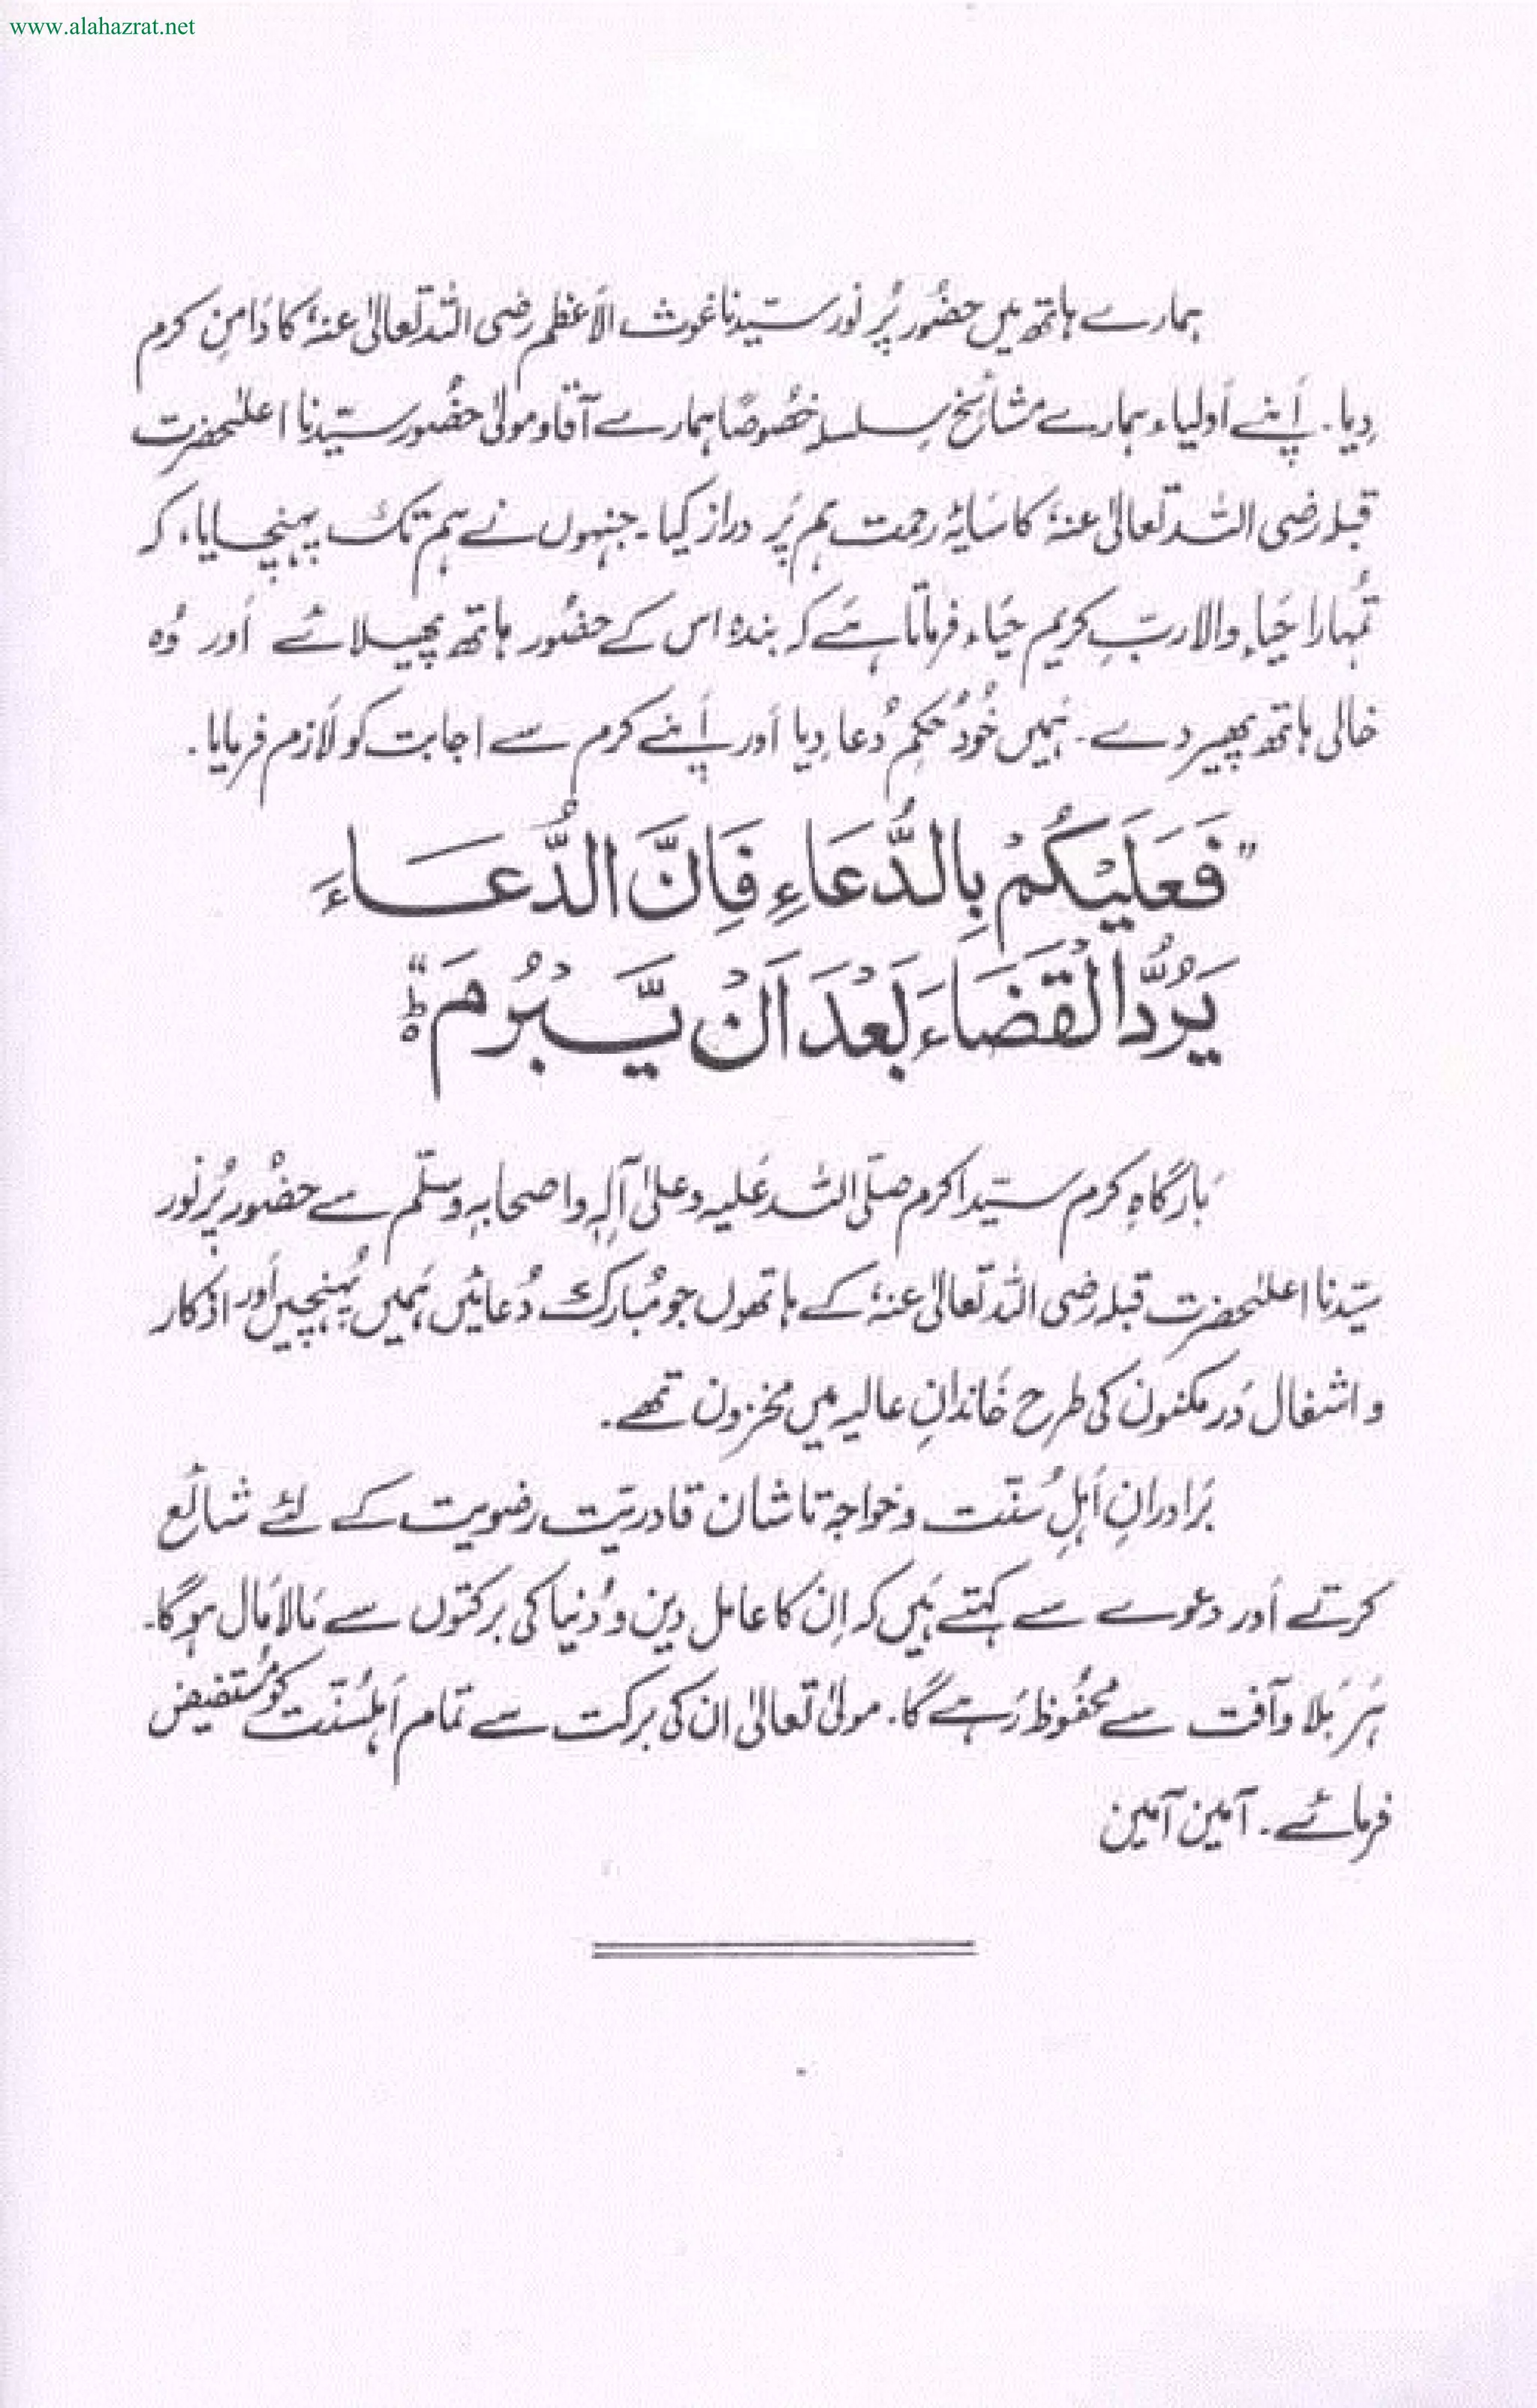 www.alahazrat.net
ہمارے ہاتھ میں حضُور پُر نور سیّدنا غوث الاَعظم رضی اللہ تعالیٰ عنہٗ کا دَامنِ کرم
دِیا۔ اَپنے اَولیاء ہمارے مشائخِ سلسلہ خصُوصًا ہمارے آقا و مولیٰ حضُور سیّدنا اعلیٰحضرت
قبلہ رضی اللہ تعالیٰ عنہٗ کا سَایۂ رحمت ہم پَر دراز کیا۔ جنہوں نے ہم تک پہنچایا، کہ
تمُہارا حَیاءِ والا ربِّ کریم حَیاء فرماتا ہَے کہ بندہ اس کے حضُور ہاتھ پھیلائے اَور وُہ
خالی ہاتھ پھیر دے۔ ہَمیں خُود حُکمِ دُعا دِیا اَور اَپنے کرم سے اجابت کو لَازم فرمایا۔
"فَعَلَيْكُمْ بِالدُّعَاءِ فَاِنَّ الدُّعَاءَ
يَرُدُّ الْقَضَاءَ بَعْدَ اَنْ يَّبْرُمَ ؕ"
بَارگاہِ کرم سَیّد اکرم صلّی اللہ عَلیہ وعلیٰ آلہٖ واصحابہٖ وسلّم سے حضُور پُر نُور
سیّدنا اعلیٰحضرت قبلہ رضی اللہ تعالیٰ عنہٗ کے ہاتھوں جو مُبارک دُعائیں ہَمیں پہُنچیں اَور اذکار
و اشغال دَر مکنون کی طرح خَاندانِ عالیہ میں مخزون تھے۔
بَرادرانِ اَہلِ سُنّت وخواجہ تاشان قادریّت رضویت کے لئے شائع
کرتے اَور دعوے سے کہتے ہَیں کہ اِن کا عامل دین و دُنیا کی برکتوں سے مَالا مَال ہوگا۔
ہَر بَلا و آفت سے محفُوظ رَہے گا۔ مولیٰ تعالیٰ ان کی برکت سے تمام اَہلسُنّت کو مُستفیض
فرمائے۔ آمین آمین